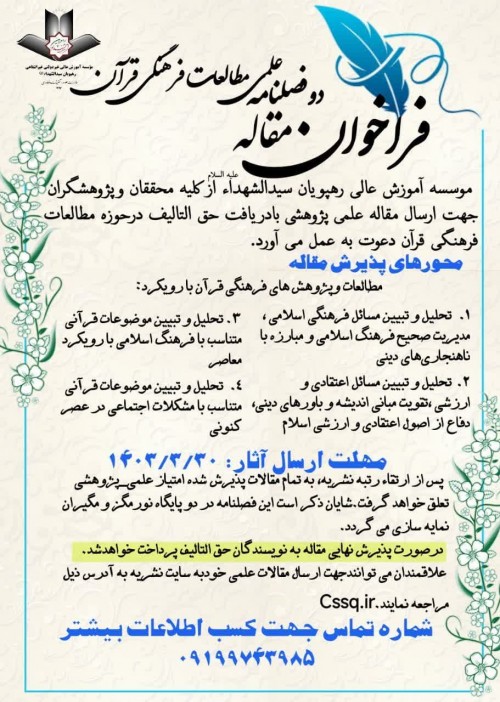 موسسه آموزش عالی حوزوی غیرانتفاعی
رهپویان سیدالشهداء
دو فصلنامه علمی مطالعات فرهنگی قرآن
فراخوان مقاله
علیه السلام
موسسه آموزش عالی رهپویان سیدالشهداء از کلیه محققان و پژوهشگران
جهت ارسال مقاله علمی پژوهشی بادریافت حق التالیف درحوزه مطالعات
فرهنگی قرآن دعوت به عمل می آورد.
محورهای پذیرش مقاله
مطالعات و پژوهش های فرهنگی قرآن با رویکرد:
۱. تحلیل و تبیین مسائل فرهنگی اسلامی،
مدیریت صحیح فرهنگ اسلامی و مبارزه با
ناهنجاری‌های دینی
۲. تحلیل و تبیین مسائل اعتقادی و
ارزشی ،تقویت مبانی اندیشه و باورهای دینی،
دفاع از اصول اعتقادی و ارزشی اسلام
۳. تحلیل و تبیین موضوعات قرآنی
متناسب با فرهنگ اسلامی با رویکرد
معاصر
۴. تحلیل و تبیین موضوعات قرآنی
متناسب با مشکلات اجتماعی در عصر
کنونی
مهلت ارسال آثار: ۱۴۰۳/۳/۳۰
پس از ارتقاء رتبه نشریه، به تمام مقالات پذیرش شده امتیاز علمی_پژوهشی
تعلق خواهد گرفت.شایان ذکر است این فصلنامه در دو پایگاه نورمگز و مگیران
نمایه سازی می گردد.
درصورت پذیرش نهایی مقاله به نویسندگان حق التالیف پرداخت خواهدشد.
علاقمندان می توانندجهت ارسال مقالات علمی خودبه سایت نشریه به آدرس ذیل
مراجعه نمایند.Cssq.ir
شماره تماس جهت کسب اطلاعات بیشتر
۰۹۱۹۹۷۴۳۹۸۵